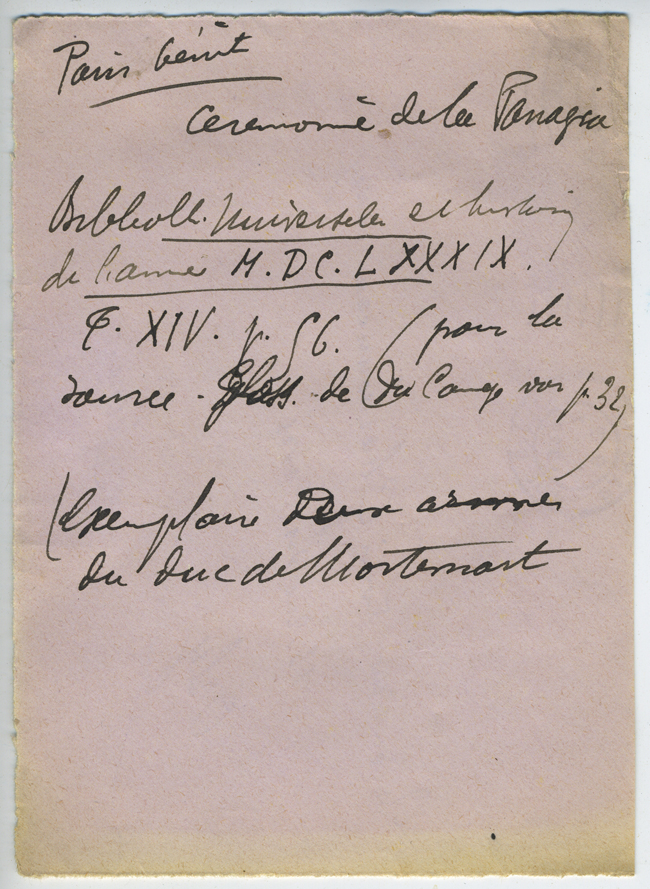 Pain bénit
Ceremonie de la Panagia
Biblioth. Universelle et historiq
de l'annee M.DC.LXXXIX.
T. XIV. p. 56. (pour la
source - Gloss. de Du Cange voir p. 32)
(Exemplaire aux armes
du duc de Mortemart